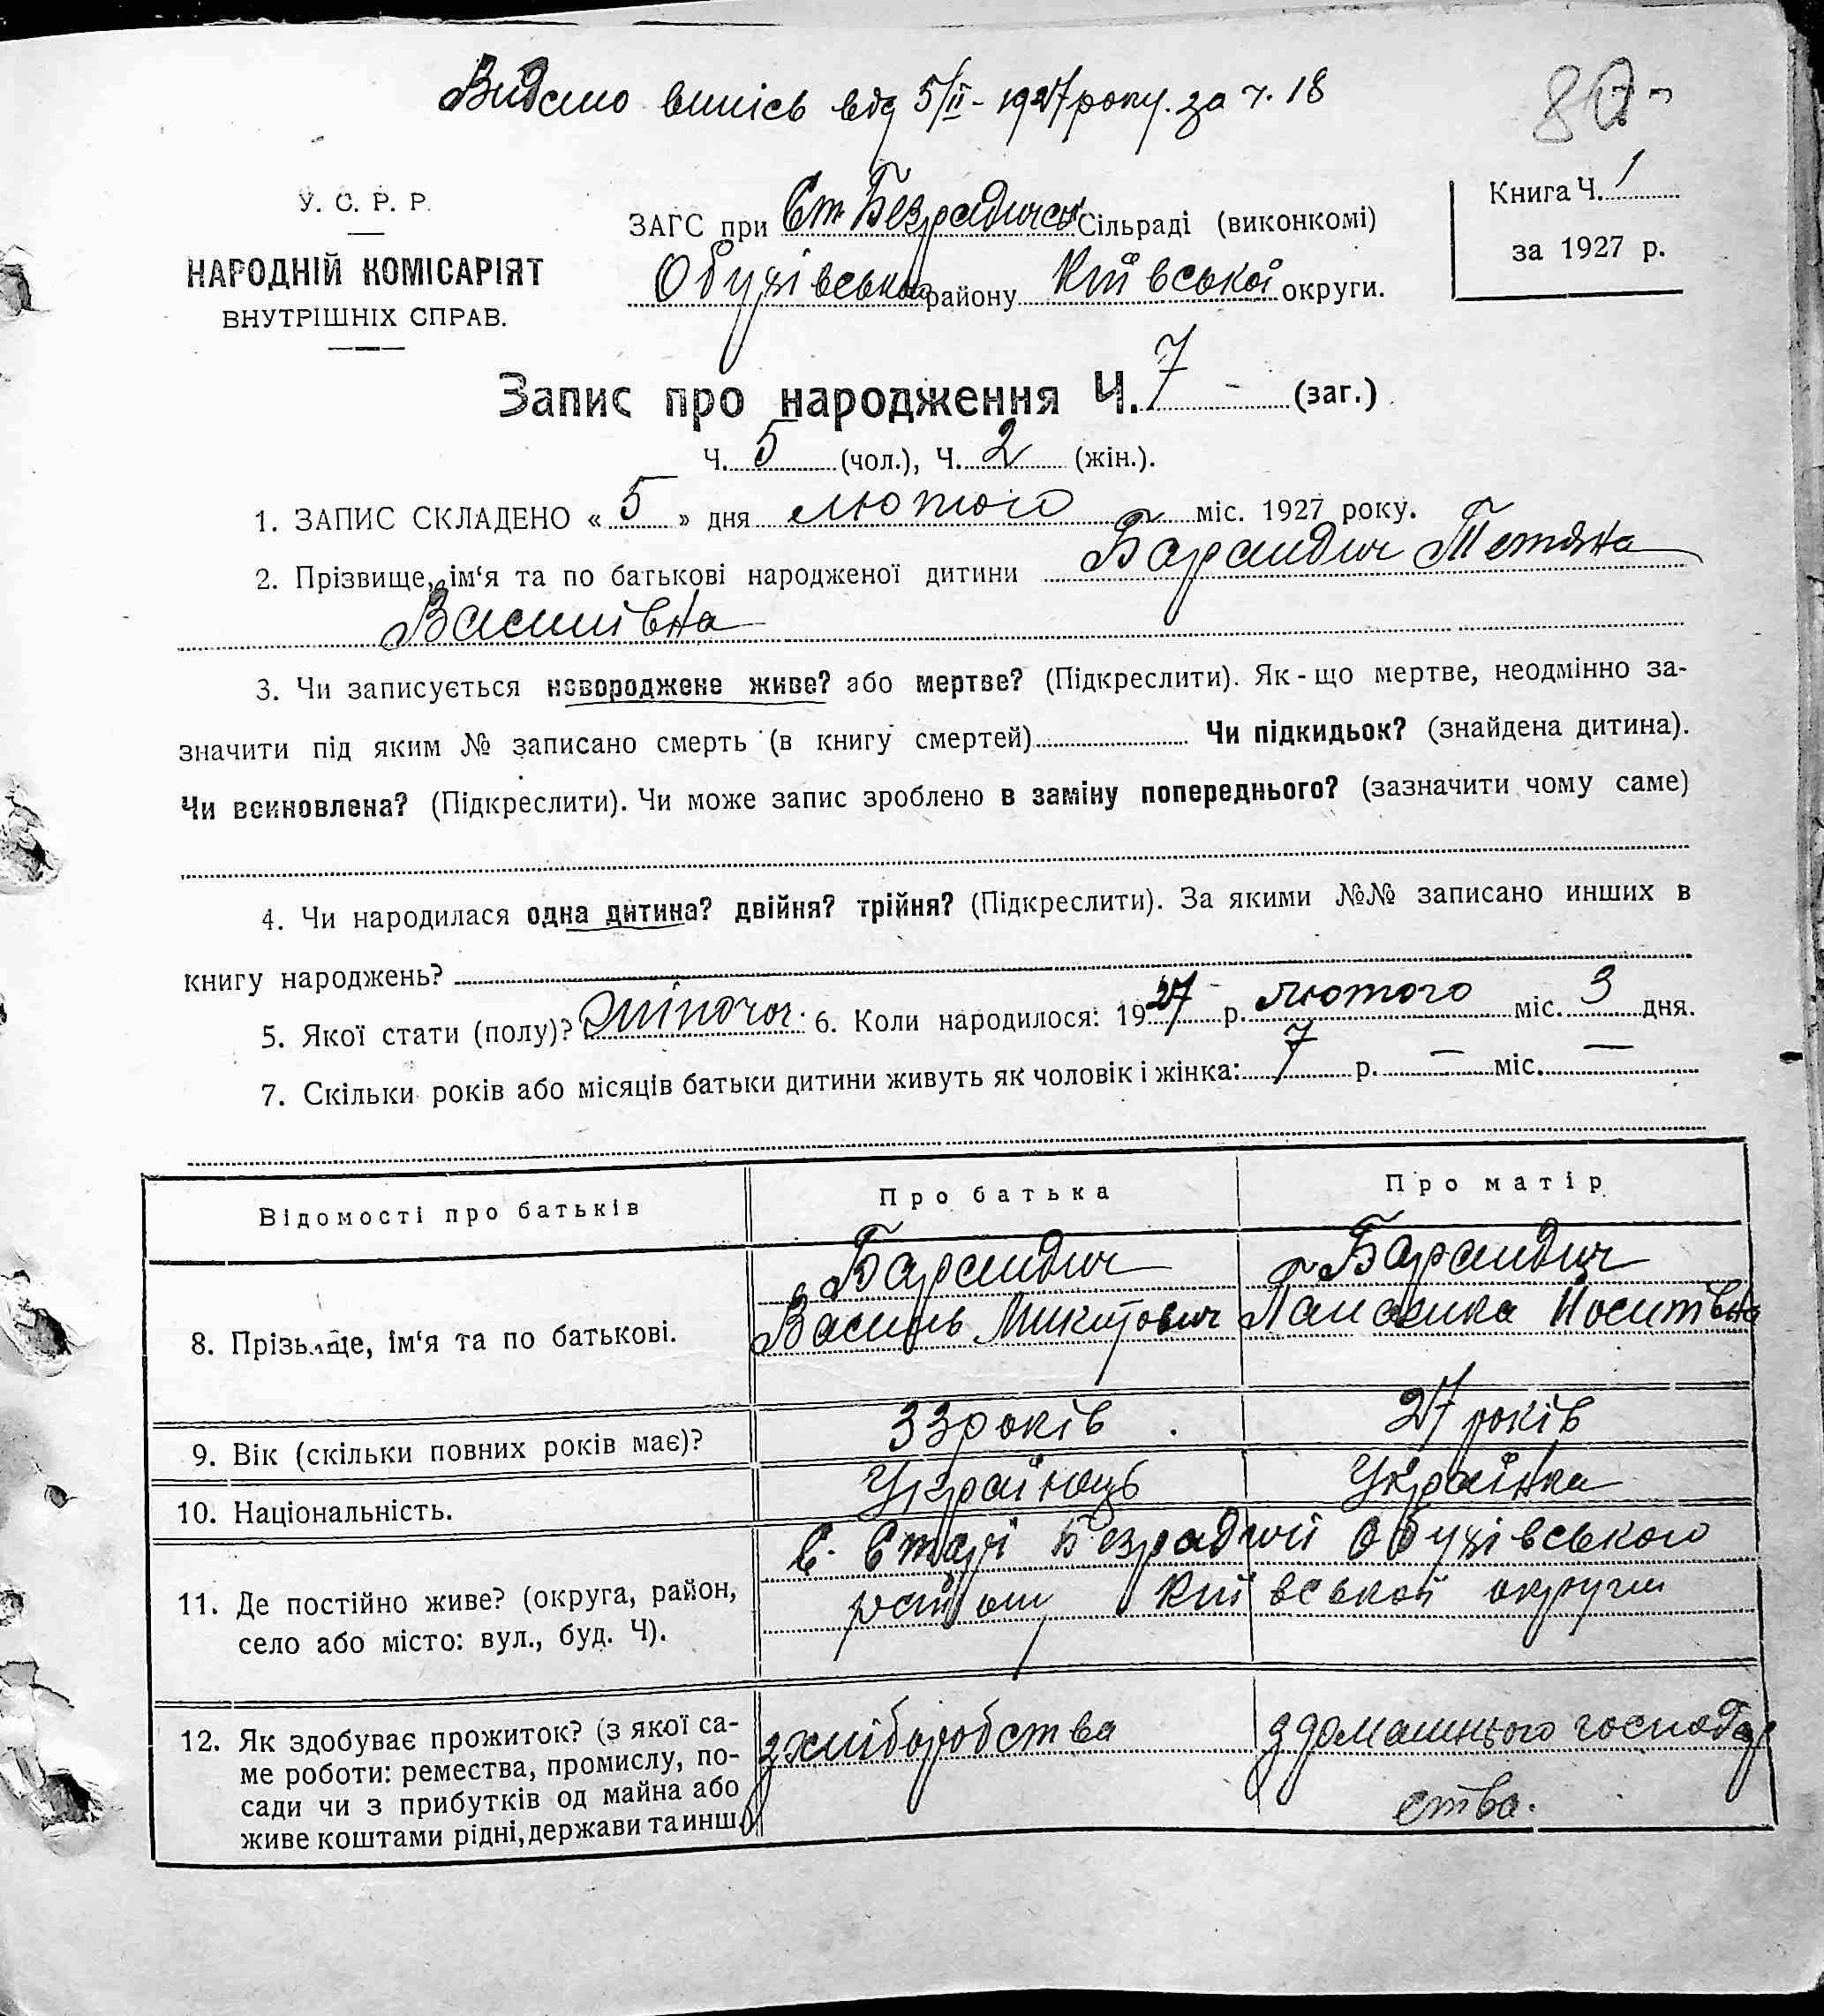 Видано випісь від 5/II - 1927 року. за ч. 18
У. С. Р. Р.
НАРОДНІЙ КОМІСАРІЯТ
ВНУТРІШНІХ СПРАВ.
ЗАГС при Ст. Безрадичск Сільраді (виконкомі)
Обухівського району Київської округи.
Книга Ч. 1
за 1927 р.
Запис про народження Ч. 7 - (заг.)
Ч. 5 (чол.), Ч. 2 (жін.).
1. ЗАПИС СКЛАДЕНО « 5 » дня лютого міс. 1927 року.
2. Прізвище, ім'я та по батькові народженої дитини Барандич Тетяна
Василівна
3. Чи записується новороджене живе? або мертве? (Підкреслити). Як-що мертве, неодмінно за-
значити під яким № записано смерть (в книгу смертей) Чи підкидьок? (знайдена дитина).
Чи всиновлена? (Підкреслити). Чи може запис зроблено в заміну попереднього? (зазначити чому саме)
4. Чи народилася одна дитина? двійня? трійня? (Підкреслити). За якими №№ записано инших в
книгу народжень?
5. Якої стати (полу)? жіночої 6. Коли народилося: 1927 р. лютого міс. 3 дня.
7. Скільки років або місяців батьки дитини живуть як чоловік і жінка: 7 р. — міс. —
Відомості про батьків Про батька Про матір
Барандич Барандич
8. Прізвище, ім'я та по батькові. Василь Микитович
9. Вік (скільки повних років має)? 33 років 27 років
10. Національність. Українець Українка
с. Старі Безрадичі Обухівського
11. Де постійно живе? (округа, район, району Київської округи
село або місто: вул., буд. Ч).
12. Як здобуває прожиток? (з якої са- з хліборобства з домашнього господар
ме роботи: ремества, промислу, по- ства.
сади чи з прибутків од майна або
живе коштами рідні, держави та инш.